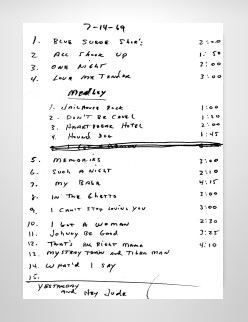 7-14-69
1. BLUE SUEDE SHOE'S 2:00
2 ALL SHOOK UP 1:50
3. ONE NIGHT 3:00
4. LOVE ME TENDER 3:00
MEDLEY
1. JAILHOUSE ROCK 1:00
2. DON'T BE CRUEL 1:30
3. HEARTBREAK HOTEL 2:00
4 HOUND DOG 1:45
5. MEMORIES 3:00
6. SUCH A NIGHT 2:10
7. MY BABE 4:15
8. IN THE GHETTO 3:00
9. I CAN'T STOP LOVING YOU 3:00
10. I GOT A WOMAN 2:30
11. JOHNNY BE GOOD 3:25
12. THAT'S ALL RIGHT MAMA 4:10
13. MYSTERY TRAIN AND TIGER MAN
14. WHAT'D I SAY
15.
YESTERDAY
AND HEY JUDE